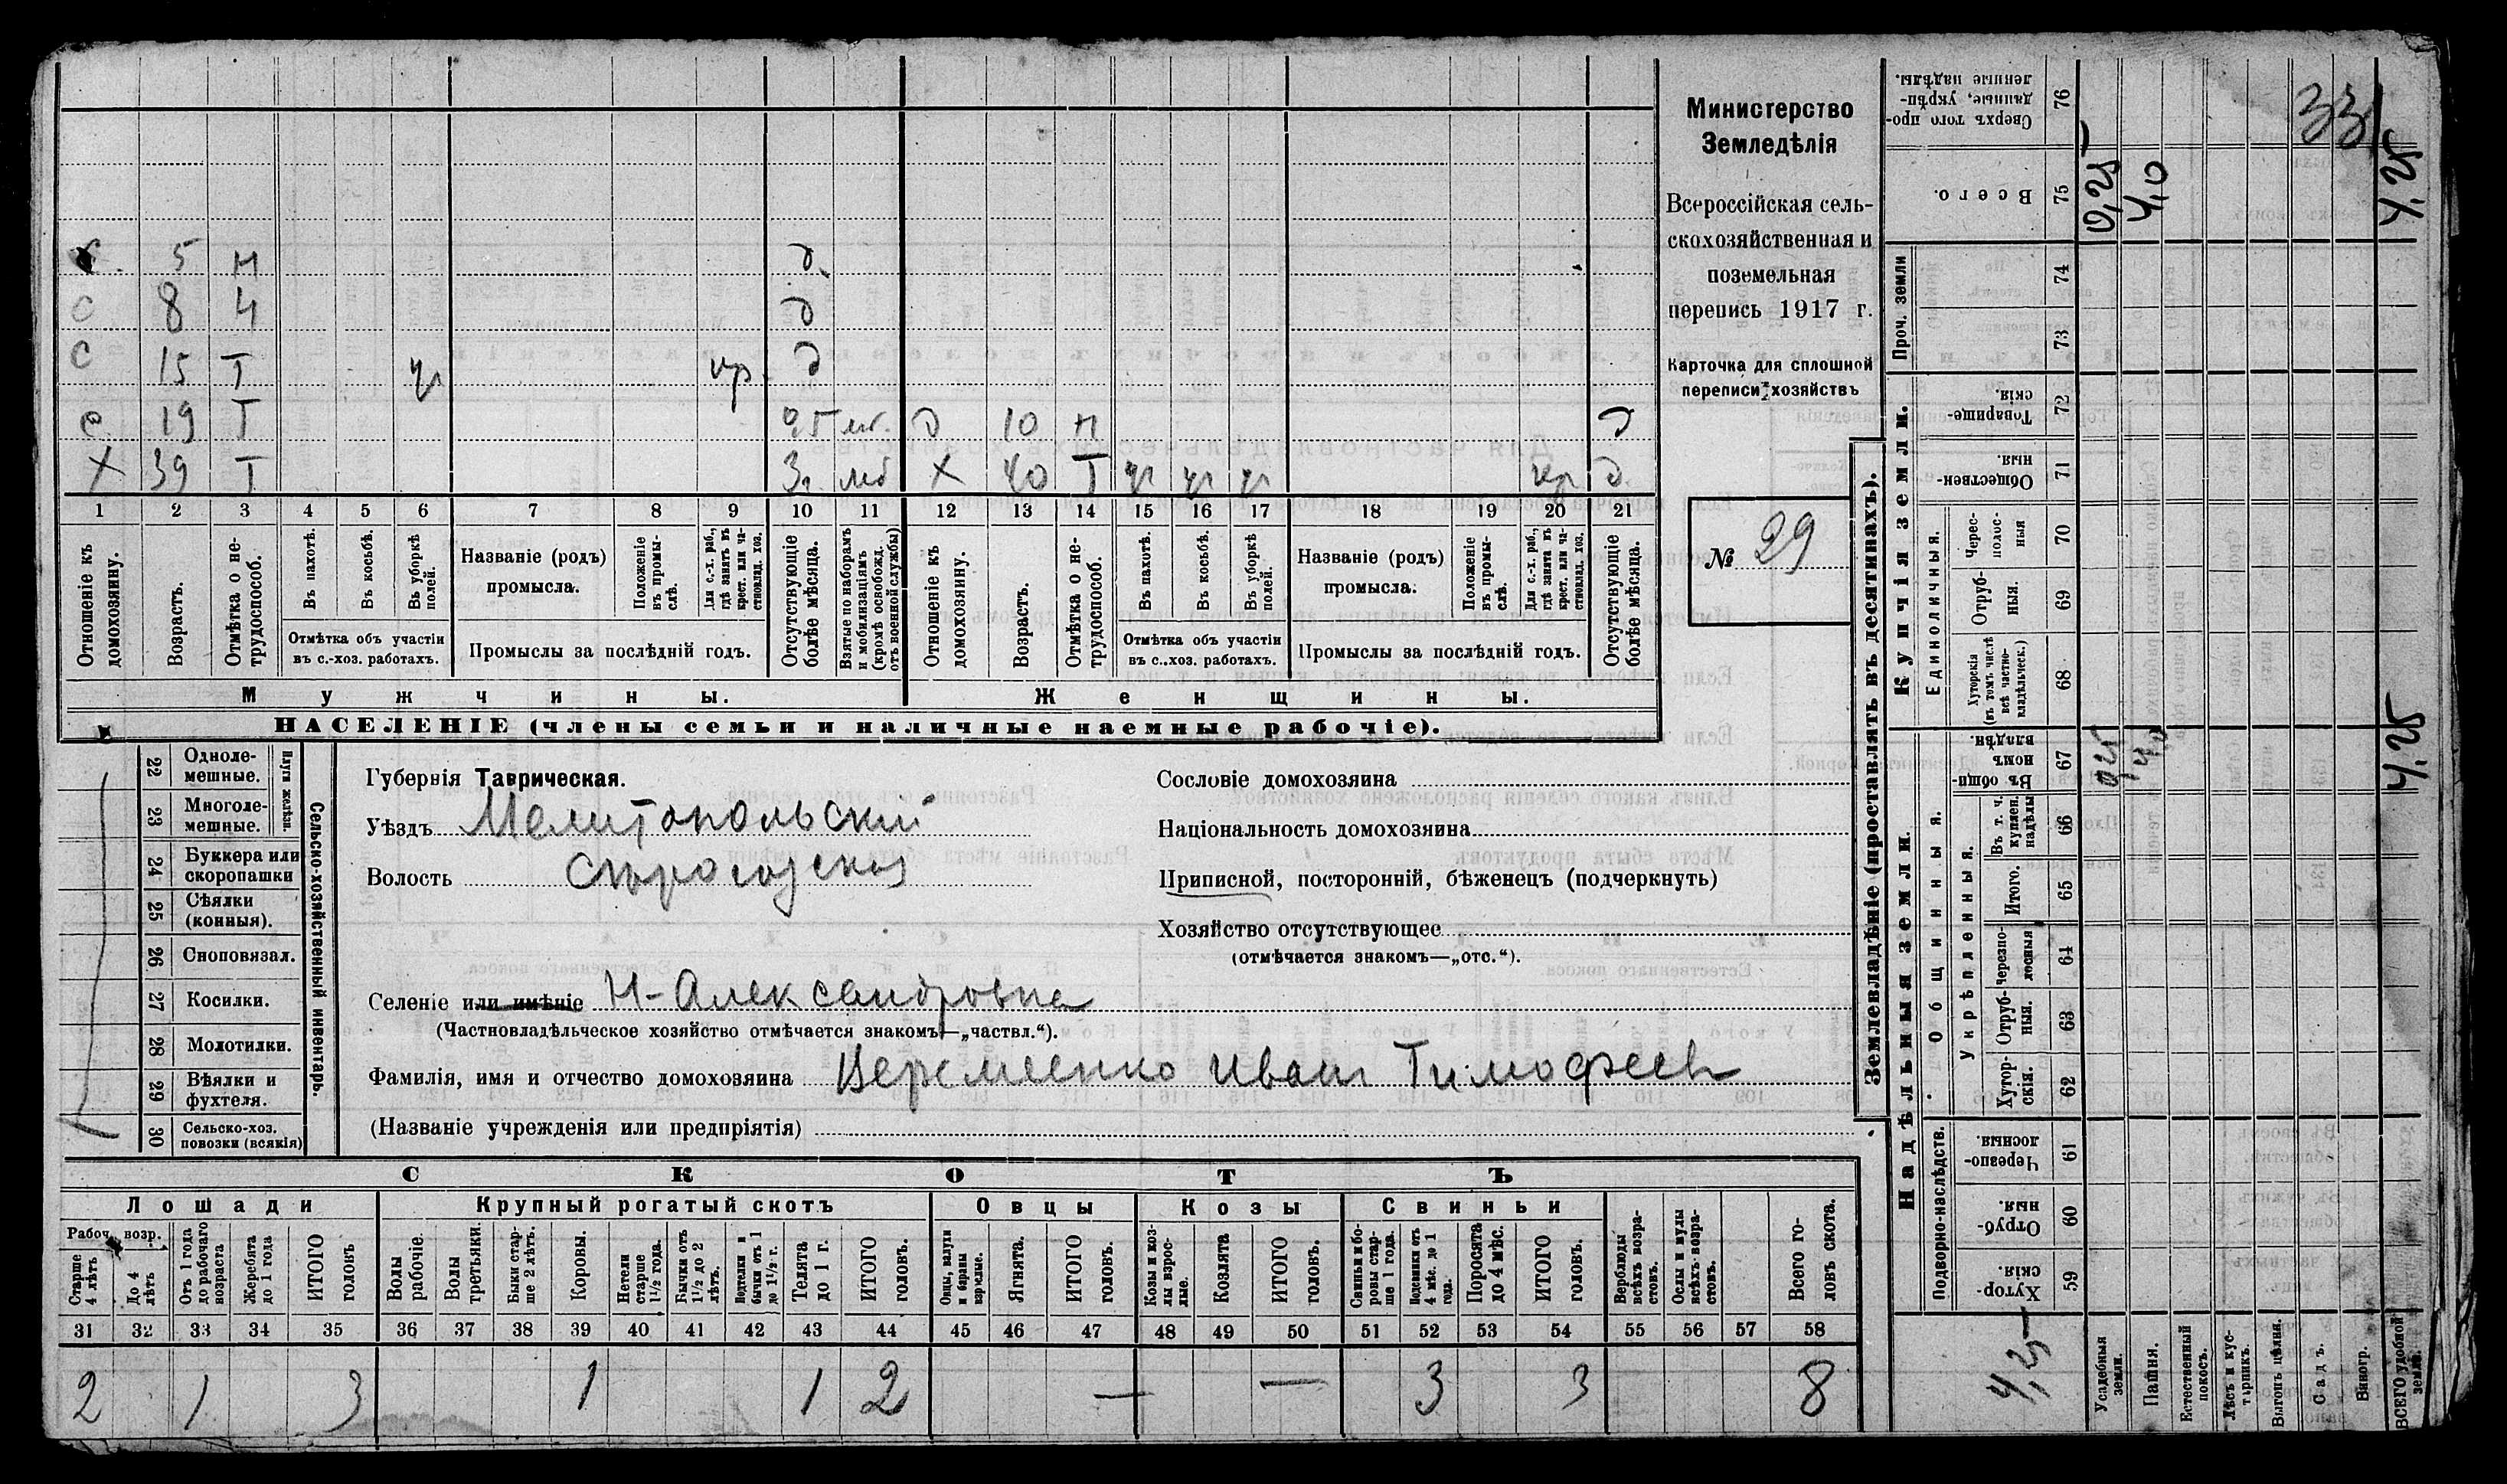 Министерство
Земледѣлія
Всероссійская сель-
скохозяйственная и
поземельная
перепись 1917 г.
Карточка для сплошной
переписи хозяйствъ
№ 29
С 5 Н д
С 8 Ч д
С 15 Т уг кр д
С 19 Т д 10 Н д
Х 39 Т Х 40 Т уг уг уг кр д
1 2 3 4 5 6 7 8 9 10 11 12 13 14 15 16 17 18 19 20 21
Отношеніе къ домохозяину.
Возрастъ.
Отмѣтка о не-трудоспособ.
Въ пахотѣ.
Въ косьбѣ.
Въ уборкѣ полей.
Отмѣтка объ участіи
въ с.-хоз. работахъ.
Названіе (родъ)
промысла.
Положеніе въ промы-слѣ.
Для с.-х. раб., гдѣ занятъ въ крест. или ча-стновлад. хоз.
Промыслы за послѣдній годъ.
Отсутствующіе болѣе мѣсяца.
Взятые по наборамъ и мобилизаціямъ (кромѣ освобожд. отъ военной службы)
Отношеніе къ домохозяину.
Возрастъ.
Отмѣтка о не-трудоспособ.
Въ пахотѣ.
Въ косьбѣ.
Въ уборкѣ полей.
Отмѣтка объ участіи
въ с.-хоз. работахъ.
Названіе (родъ)
промысла.
Положеніе въ промы-слѣ.
Для с.-х. раб., гдѣ занятъ въ крест. или ча-стновлад. хоз.
Промыслы за послѣдній годъ.
Отсутствующіе болѣе мѣсяца.
Мужчины.
Женщины.
НАСЕЛЕНІЕ (члены семьи и наличные наемные рабочіе).
Сельско-хозяйственный инвентарь.
Плуги желѣзн.
22 Одноле-мешные.
23 Многоле-мешные.
24 Буккера или скоропашки
25 Сѣялки (конныя).
26 Сноповязал.
27 Косилки.
28 Молотилки.
29 Вѣялки и фухтеля.
30 Сельско-хоз. повозки (всякія)
1
Губернія Таврическая.
Уѣздъ Мелитопольский
Волость
Селеніе или имѣніе Н-Александровка
(Частновладѣльческое хозяйство отмѣчается знакомъ—„частвл.“).
Фамилія, имя и отчество домохозяина Веремеенко Иван Тимофеев
(Названіе учрежденія или предпріятія)
Сословіе домохозяина
Національность домохозяина
Приписной, посторонній, бѣженецъ (подчеркнуть)
Хозяйство отсутствующее
(отмѣчается знакомъ—„отс.“).
СКОТЪ
Лошади
Крупный рогатый скотъ
Овцы
Козы
Свиньи
Рабоч. возр.
Старше 4 лѣтъ
До 4 лѣтъ
Отъ 1 года до рабочаго возраста
Жеребята до 1 года
ИТОГО головъ
Волы рабочіе.
Волы третьяки.
Быки стар-ше 2 лѣтъ.
Коровы.
Нетели старше 1½ года.
Бычки отъ 1½ до 2 лѣтъ.
бычки отъ 1 до 1½ г.
Телята до 1 г.
ИТОГО головъ.
Овцы, валухи и бараны взрослые.
Ягнята.
ИТОГО головъ.
Козы и коз-лы взрос-лые.
Козлята
ИТОГО головъ.
Свиньи и бо-ровы стар-ше 1 года.
Подсвинки отъ 4 мѣс. до 1 года.
Поросята до 4 мѣс.
ИТОГО головъ.
Верблюды всѣхъ возра-стовъ.
Ослы и мулы всѣхъ возра-стовъ.
Всего го-ловъ скота.
31 32 33 34 35 36 37 38 39 40 41 42 43 44 45 46 47 48 49 50 51 52 53 54 55 56 57 58
2 1 3 1 1 2 — — 3 3 8
Землевладѣніе (проставлять въ десятинахъ).
Сверхъ того про-данные, укрѣп-ленные надѣлы. 76
Всего. 75
Проч. земли
74
73
Купчія земли.
Товарище-скія 72
Обществен-ныя. 71
Единоличныя.
Черес-полос-ныя 70
Отруб-ныя. 69
Хуторскія (въ томъ числѣ всѣ частно-владѣльческ.) 68
Надѣльныя земли.
Общинныя.
Въ общи-номъ владѣн. 67
Укрѣпленныя.
Въ т. ч. куплен. надѣлы 66
Итого. 65
Черезпо-лосныя 64
Отруб-ныя. 63
Хутор-скія. 62
Подворно-наслѣдств.
Черезпо-лосныя 61
Отруб-ныя 60
Хутор-скія. 59
Усадебныя земли.
Пашня.
Естественный покосъ.
Лѣсъ и кус-тарникъ.
Выгонъ цѣлина.
Садъ.
Виногр.
ВСЕГО удобной земли.
0,25
4,0
33
4,25
0,25
4,0
4,25
4,25